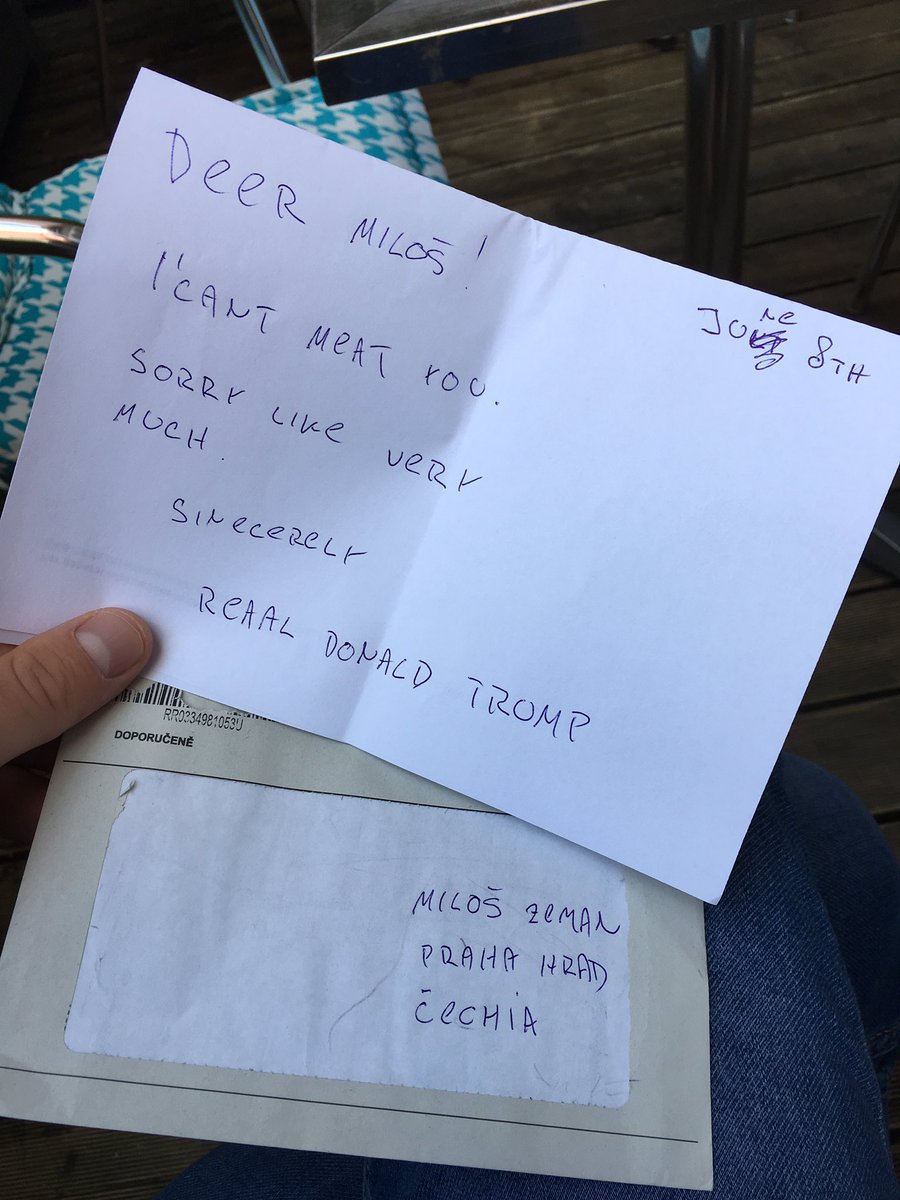 Deer Miloš!
June 8th
I'cant meat you.
Sorry like very
much.
Sinecerely
Reaal Donald Tromp
RR0334981053U
DOPORUČENĚ
Miloš Zeman
Praha Hrad
Čechia